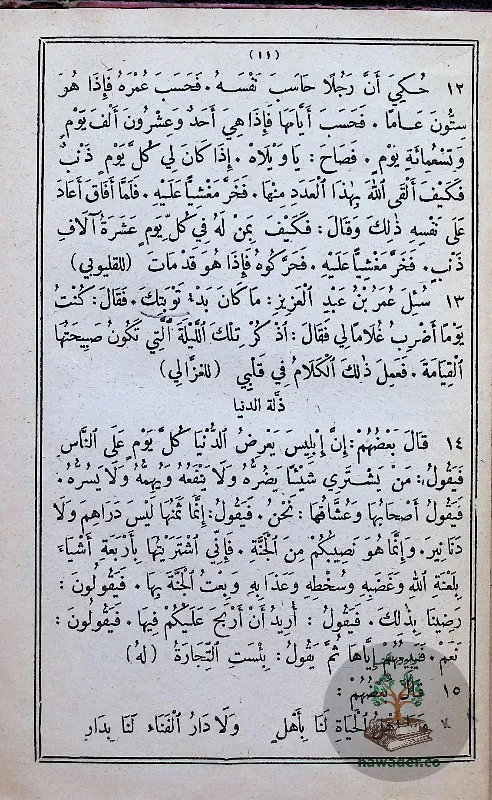 (١١)
١٢ حُكِيَ أَنَّ رَجُلًا حَاسَبَ نَفْسَهُ ۰ فَحَسَبَ عُمْرَهُ فَإِذَا هُوَ
سِتُّونَ عَامًا ۰ فَحَسَبَ أَيَّامَهَا فَإِذَا هِيَ أَحَدٌ وَعِشْرُونَ أَلْفَ يَوْمٍ
وَتِسْعُمِائَةِ يَوْمٍ ۰ فَصَاحَ : يَا وَيْلَاهُ ۰ إِذَا كَانَ لِي كُلَّ يَوْمٍ ذَنْبٌ
فَكَيْفَ أَلْقَى ٱللهَ بِهٰذَا ٱلْعَدَدِ مِنْهَا ۰ فَخَرَّ مَغْشِيًّا عَلَيْهِ ۰ فَلَمَّا أَفَاقَ أَعَادَ
عَلَى نَفْسِهِ ذٰلِكَ وَقَالَ : فَكَيْفَ بِمَنْ لَهُ فِي كُلِّ يَوْمٍ عَشَرَةُ آلَافِ
ذَنْبٍ ۰ فَخَرَّ مَغْشِيًّا عَلَيْهِ ۰ فَحَرَّكُوهُ فَإِذَا هُوَ قَدْ مَاتَ (للقليوبي)
١٣ سُئِلَ عُمَرُ بْنُ عَبْدِ ٱلْعَزِيزِ : مَا كَانَ بَدْءُ تَوْبَتِكَ ۰ فَقَالَ : كُنْتُ
يَوْمًا أَضْرِبُ غُلَامًا لِي فَقَالَ : اُذْكُرْ تِلْكَ ٱللَّيْلَةَ ٱلَّتِي تَكُونُ صَبِيحَتُهَا
ٱلْقِيَامَةَ ۰ فَعَمِلَ ذٰلِكَ ٱلْكَلَامُ فِي قَلْبِي (للغزالي)
ذلّة الدنيا
١٤ قَالَ بَعْضُهُمْ : إِنَّ إِبْلِيسَ يَعْرِضُ ٱلدُّنْيَا كُلَّ يَوْمٍ عَلَى ٱلنَّاسِ
فَيَقُولُ : مَنْ يَشْتَرِي شَيْئًا يَضُرُّهُ وَلَا يَنْفَعُهُ وَيُهِمُّهُ وَلَا يَسُرُّهُ ۰
فَيَقُولُ أَصْحَابُهَا وَعُشَّاقُهَا : نَحْنُ ۰ فَيَقُولُ : إِنَّمَا ثَمَنُهَا لَيْسَ دَرَاهِمَ وَلَا
دَنَانِيرَ ۰ وَإِنَّمَا هُوَ نَصِيبُكُمْ مِنَ ٱلْجَنَّةِ ۰ فَإِنِّي ٱشْتَرَيْتُهَا بِأَرْبَعَةِ أَشْيَاءَ
بِلَعْنَةِ ٱللهِ وَغَضَبِهِ وَسُخْطِهِ وَعَذَابِهِ وَبِعْتُ ٱلْجَنَّةَ بِهَا ۰ فَيَقُولُونَ :
رَضِينَا بِذٰلِكَ ۰ فَيَقُولُ : أُرِيدُ أَنْ أَرْبَحَ عَلَيْكُمْ فِيهَا ۰ فَيَقُولُونَ :
نَعَمْ ۰ فَيَبِيعُهُمْ إِيَّاهَا ثُمَّ يَقُولُ : بِئْسَتِ ٱلتِّجَارَةُ (لهُ)
١٥ قَالَ بَعْضُهُمْ :
ٱلْحَيَاةِ لَنَا بِأَهْلٍ وَلَا دَارُ ٱلْفَنَاءِ لَنَا بِدَارِ
nawader.co